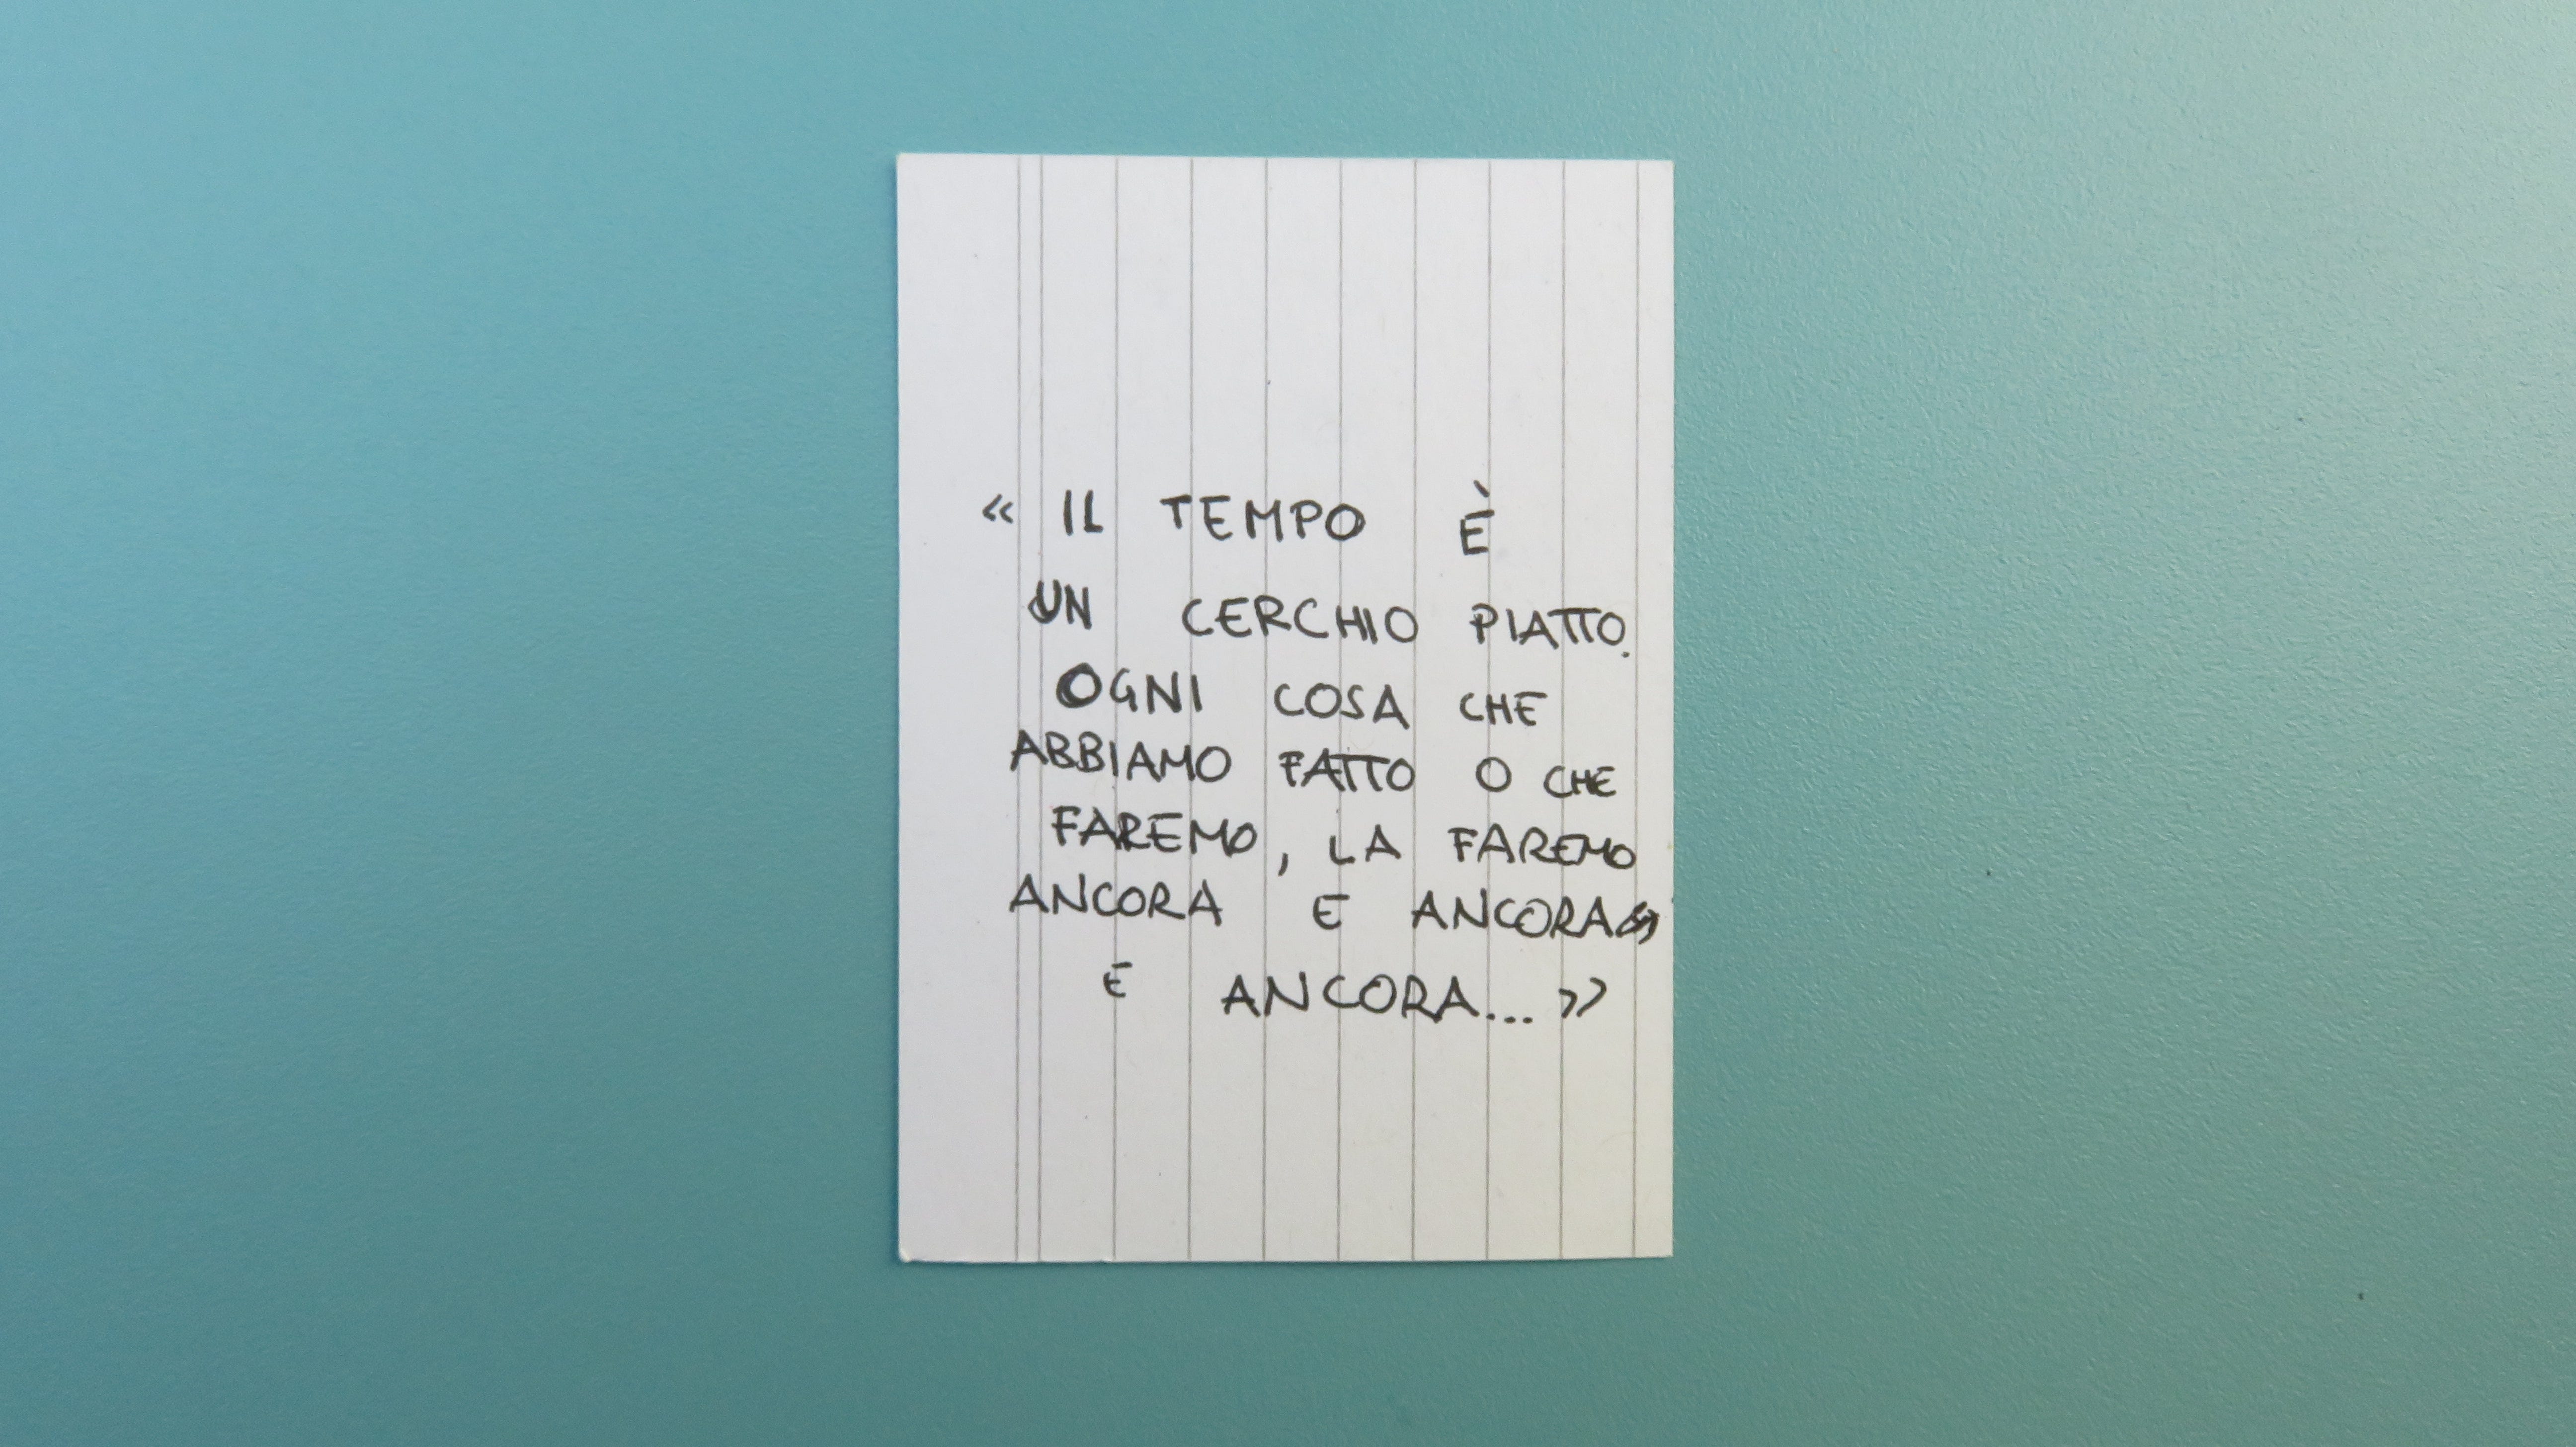 « IL TEMPO È
UN CERCHIO PIATTO.
OGNI COSA CHE
ABBIAMO FATTO O CHE
FAREMO, LA FAREMO
ANCORA E ANCORA
E ANCORA... »